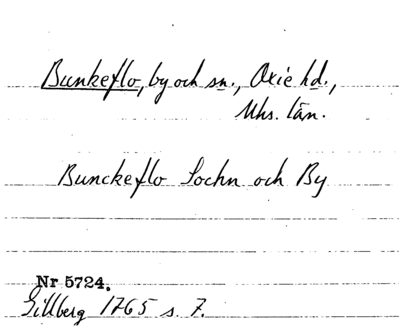 Bunkeflo, by och sn., Oxie hd.,
Mhs. län.
Bunckeflo Sochn och By
Nr 5724.
Gillberg 1765 s. 7.